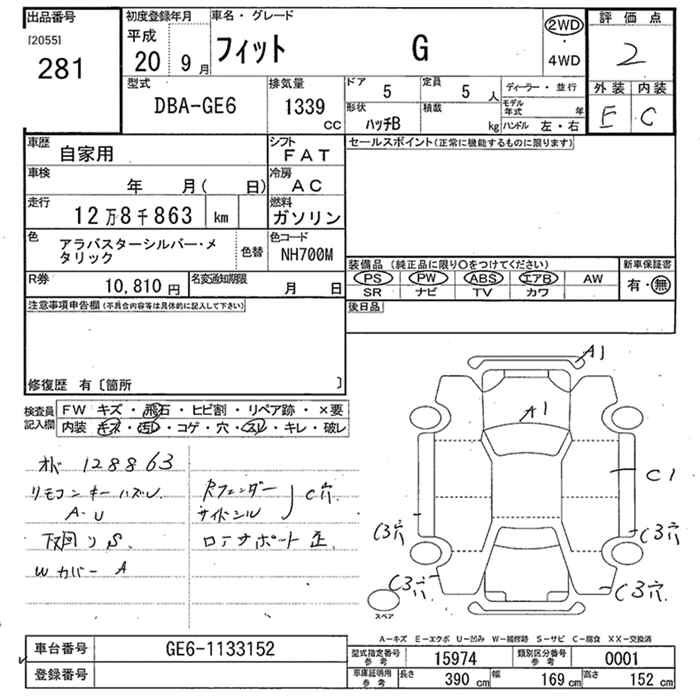 出品番号
[2055]
281
初度登録年月
平成
20 9月
車名・グレード
フィット G
2WD
・
4WD
評価点
2
外装 内装
E C
型式
DBA-GE6
排気量
1339
CC
ドア 5
定員 5 人
ディーラー・並行
形状
ハッチB
積載 kg
モデル年式 年
ハンドル 左・右
車歴
自家用
シフト
FAT
セールスポイント(正常に機能するものに限ります)
車検
年 月( 日)
冷房
AC
走行
12万8千863 km
燃料
ガソリン
色
アラバスターシルバー・メタリック
色替
色コード
NH700M
装備品(純正品に限り○をつけてください)
新車保証書
PS PW ABS エアB AW
SR ナビ TV カワ
有・無
R券
10,810 円
名変通知期限
月 日
後日品
注意事項申告欄(不具合内容等は具体的に記入して下さい)
修復歴 有〔箇所 〕
検査員記入欄
FW キズ・飛石・ヒビ割・リペア跡・×要
内装 キズ・汚れ・コゲ・穴・スレ・キレ・破レ
オド 128863
リモコンキーハズレ
A・U
下回りS
Wカバー A
Rフェンダー
サイドシル
C穴
ロアサポート 歪
A1
A1
C1
C3穴
C3穴
C3穴
C3穴
スペア
A-キズ E-エクボ U-凹み W-補修跡 S-サビ C-腐食 XX-交換済
車台番号
GE6-1133152
登録番号
型式指定番号
参考
15974
類別区分番号
参考
0001
車庫証明用
参考
長さ 390 cm
幅 169 cm
高さ 152 cm